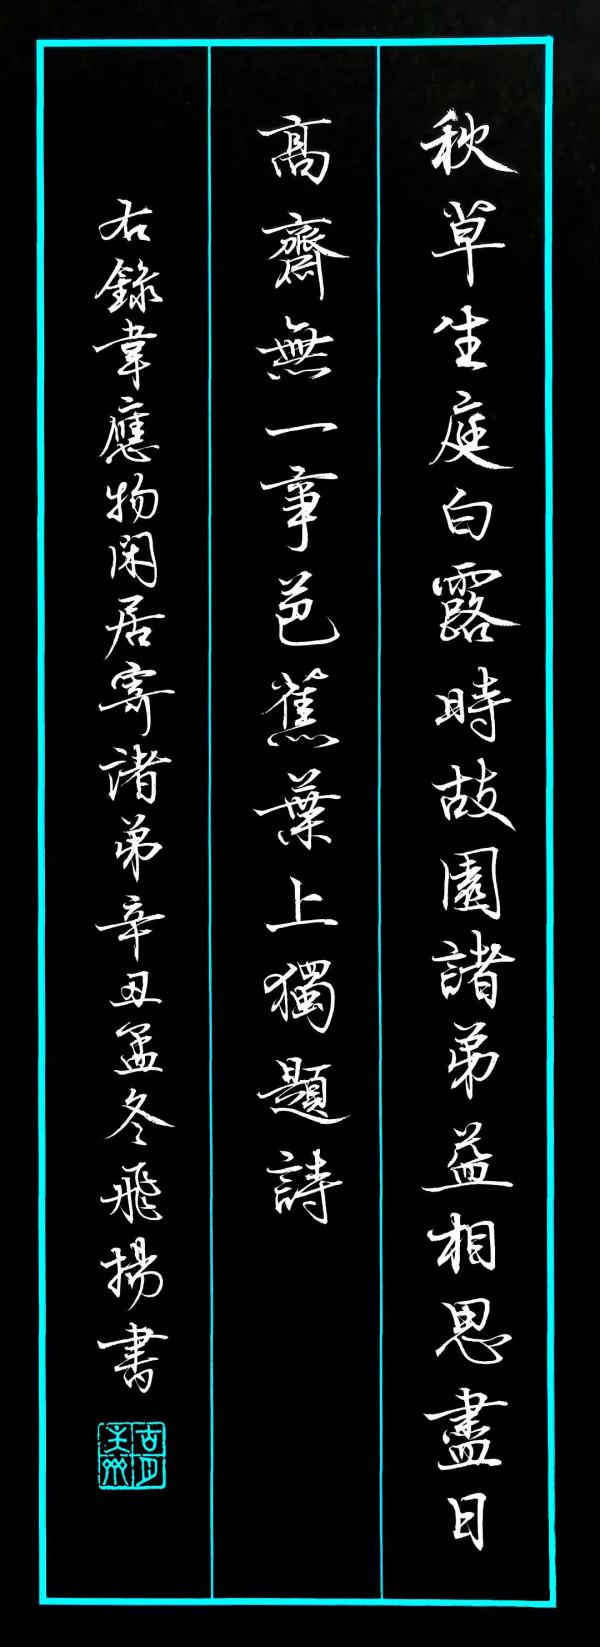 秋草生庭白露時故園諸弟益相思盡日
高齋無一事芭蕉葉上獨題詩
右錄韋應物閑居寄諸弟辛丑孟冬飛揚書